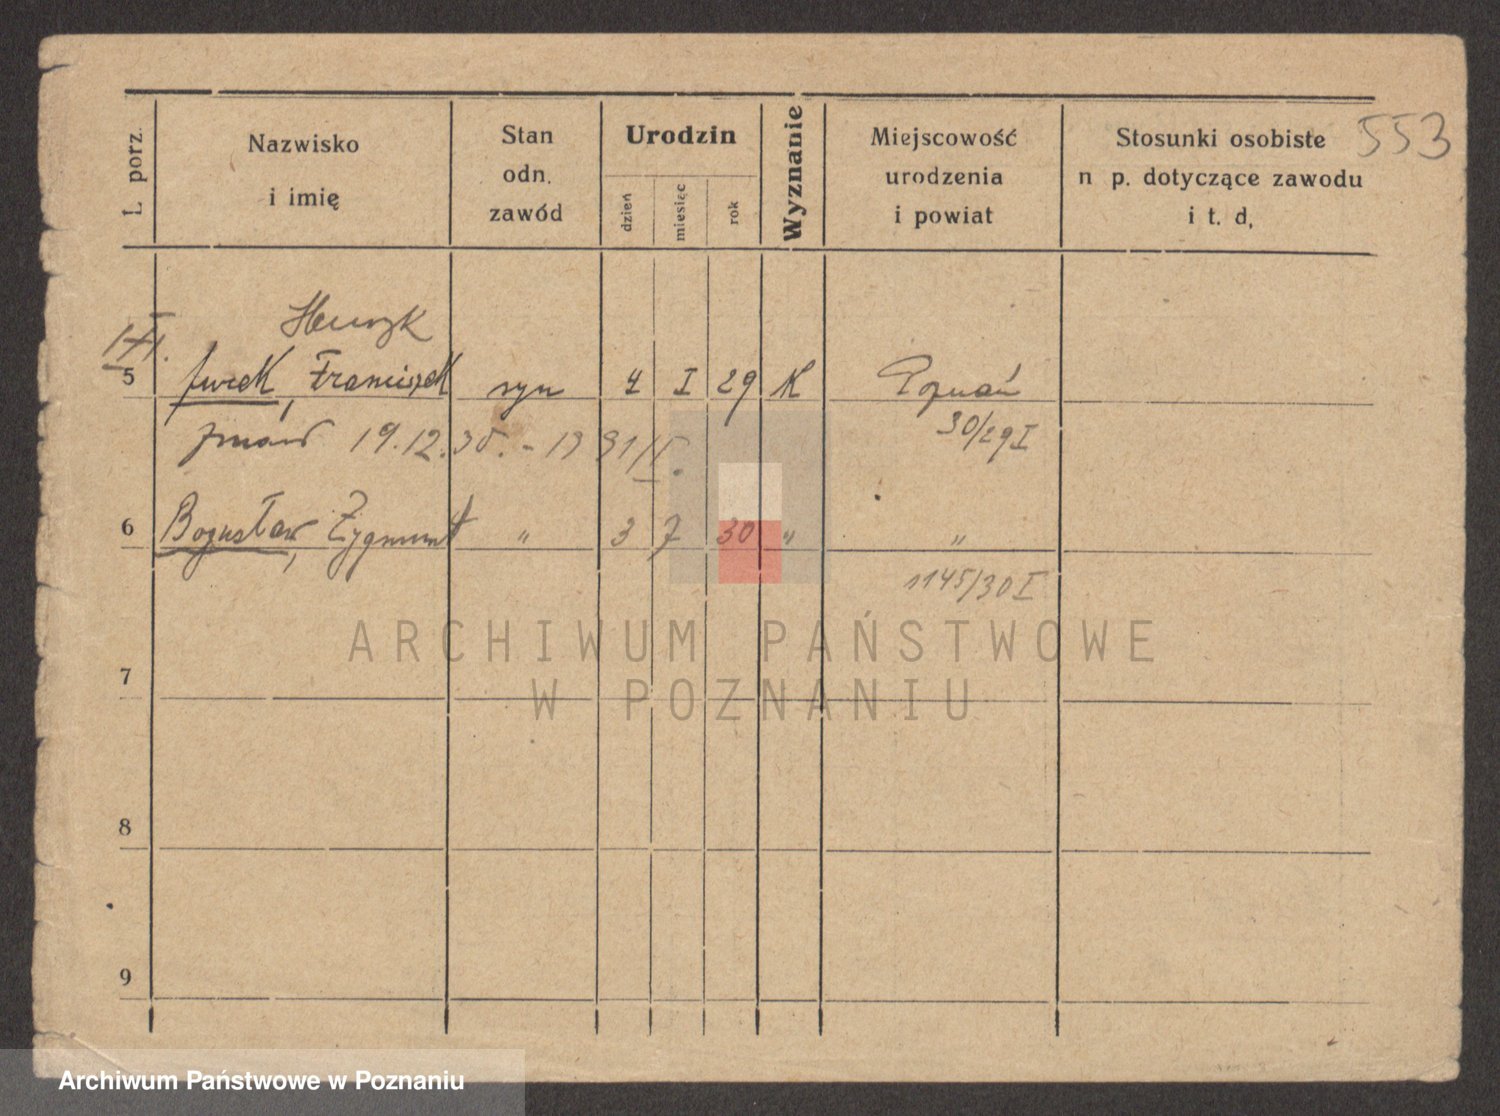 553
L. porz.
Nazwisko
i imię
Stan
odn.
zawód
Urodzin
dzień
miesiąc
rok
Wyznanie
Miejscowość
urodzenia
i powiat
Stosunki osobiste
n p. dotyczące zawodu
i t. d,
Henryk
5 Jurek, Franciszek syn 4 I 29 K Poznań
30/29 I
19.12.
6 Bogusław, Zygmunt " 3 7 30 " "
1145/30 I
7
8
9
ARCHIWUM PAŃSTWOWE
W POZNANIU
Archiwum Państwowe w Poznaniu